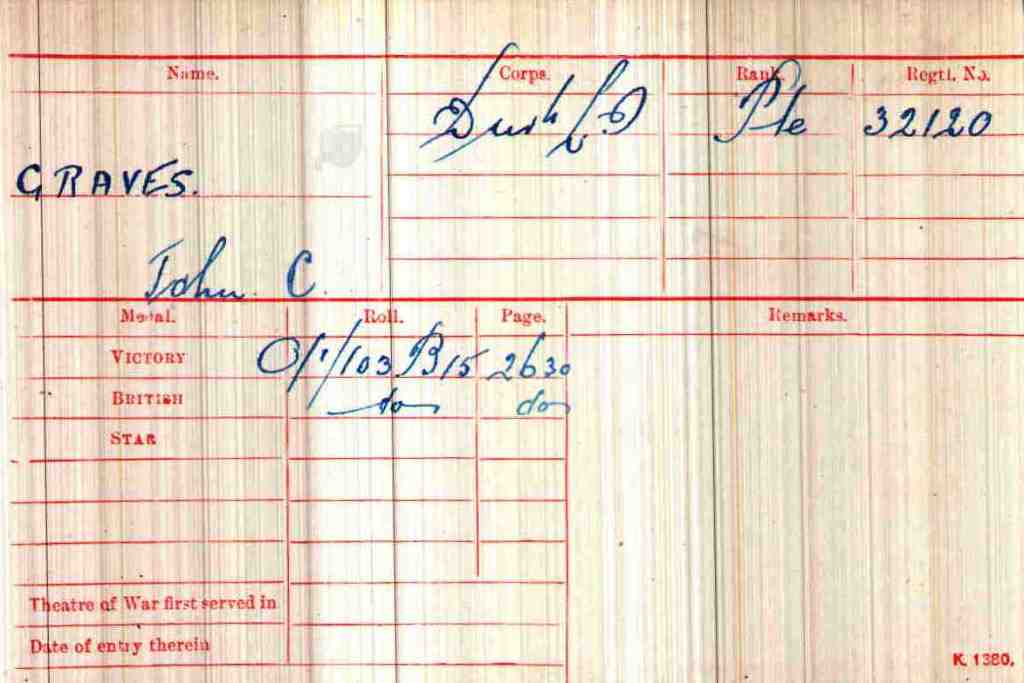 Name. Corps. Rank. Regtl. No.
Durh L.I. Pte 32120
GRAVES.
John C.
Medal. Roll. Page. Remarks.
VICTORY O/1/103 B15 2630
BRITISH do do
STAR
Theatre of War first served in
Date of entry therein
K. 1380.